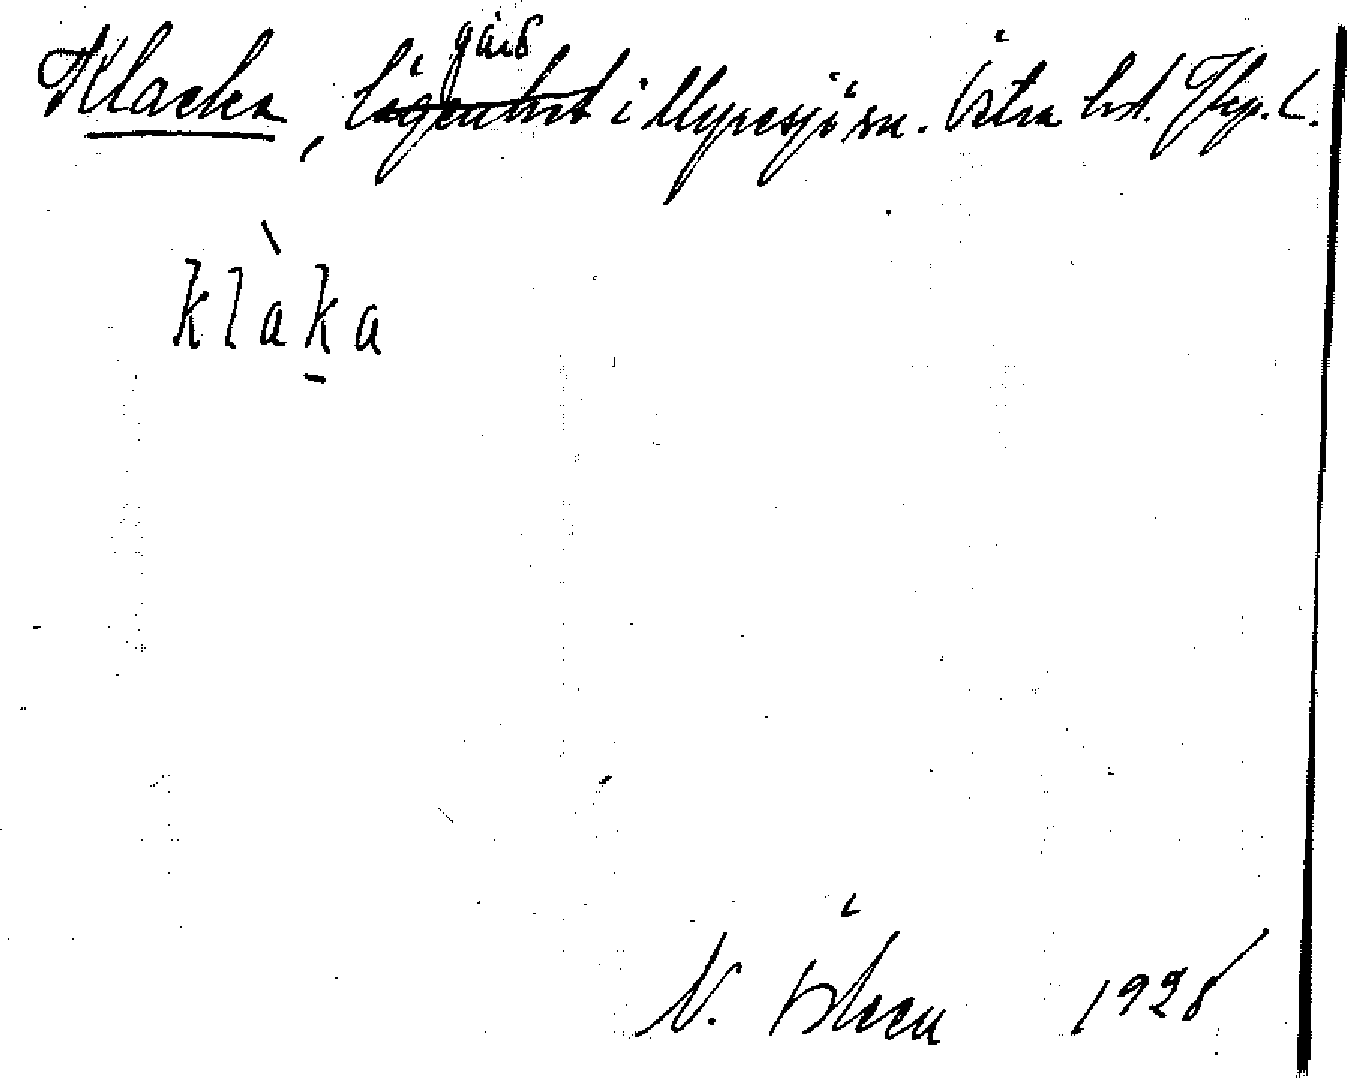 gård
Klacka, lägenhet i Myresjö sn. Östra hd. Jkp. L.
klàka
N. Ölveu 1928